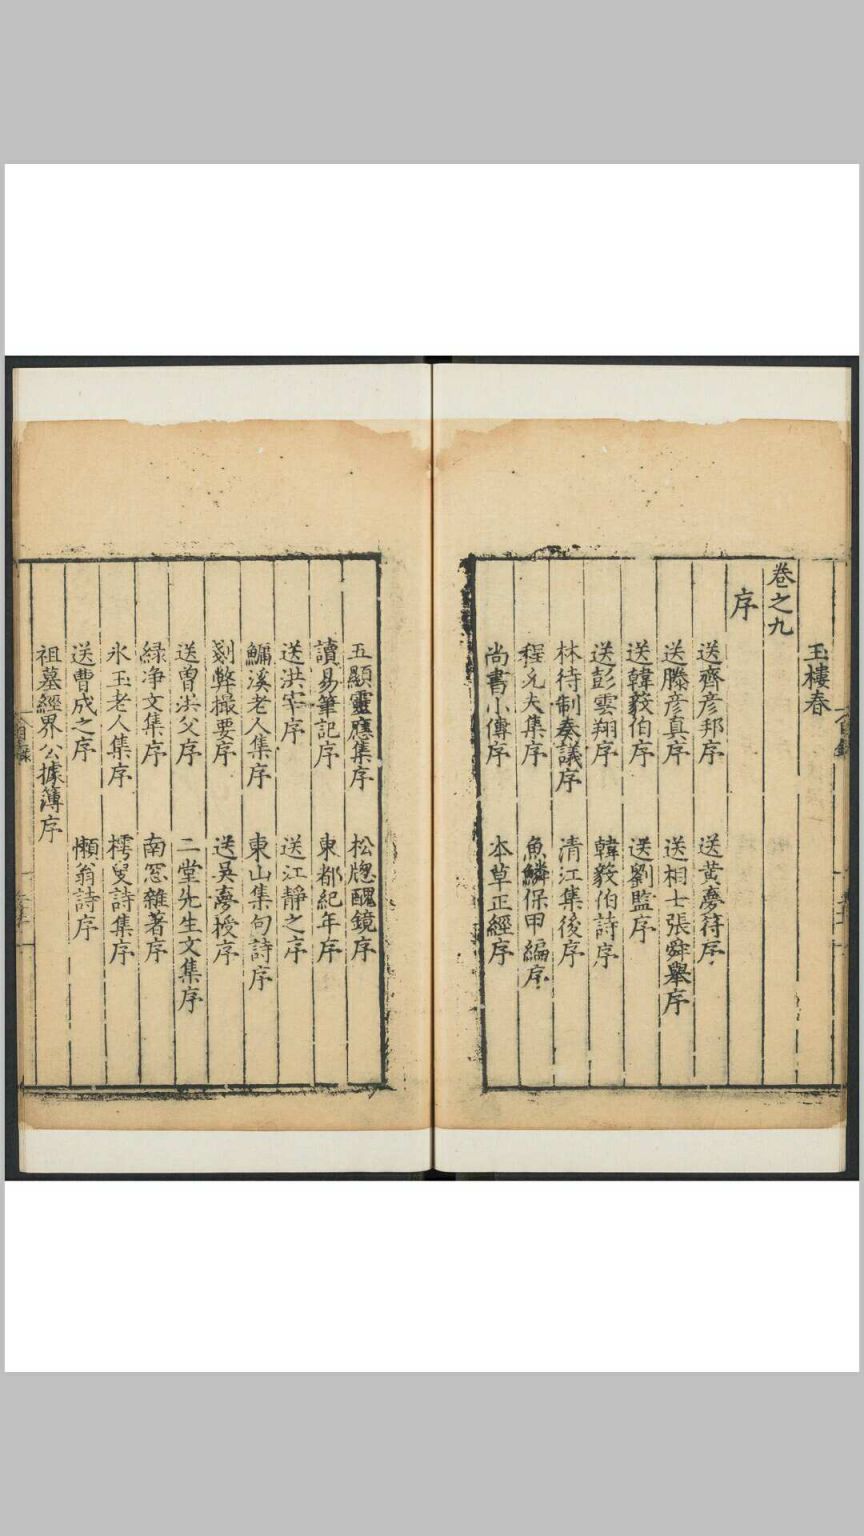 玉樓春
卷之九
序
送齊彥邦序 送黃夢符序
送滕彥真序 送相士張舜舉序
送韓毅伯序 送劉監序
送彭雲翔序 韓毅伯詩序
林待制奏議序 清江集後序
程允夫集序 魚鱗保甲編序
尚書小傳序 本草正經序
五顯靈應集序 松牕醜鏡序
讀易筆記序 東都紀年序
送洪宰序 送江靜之序
鱅溪老人集序 東山集句詩序
剗弊撮要序 送吳夢授序
送曽洪父序 二堂先生文集序
緑净文集序 南窓雜著序
氷玉老人集序 樗叟詩集序
送曹成之序 懶翁詩序
祖墓經界公據簿序